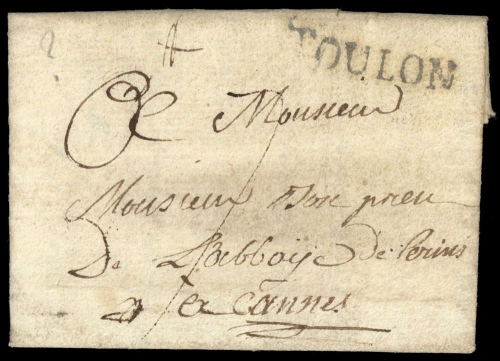 TOULON
A Monsieur
Monsieur prieur
De L'abboÿe de Lerins
a Cannes